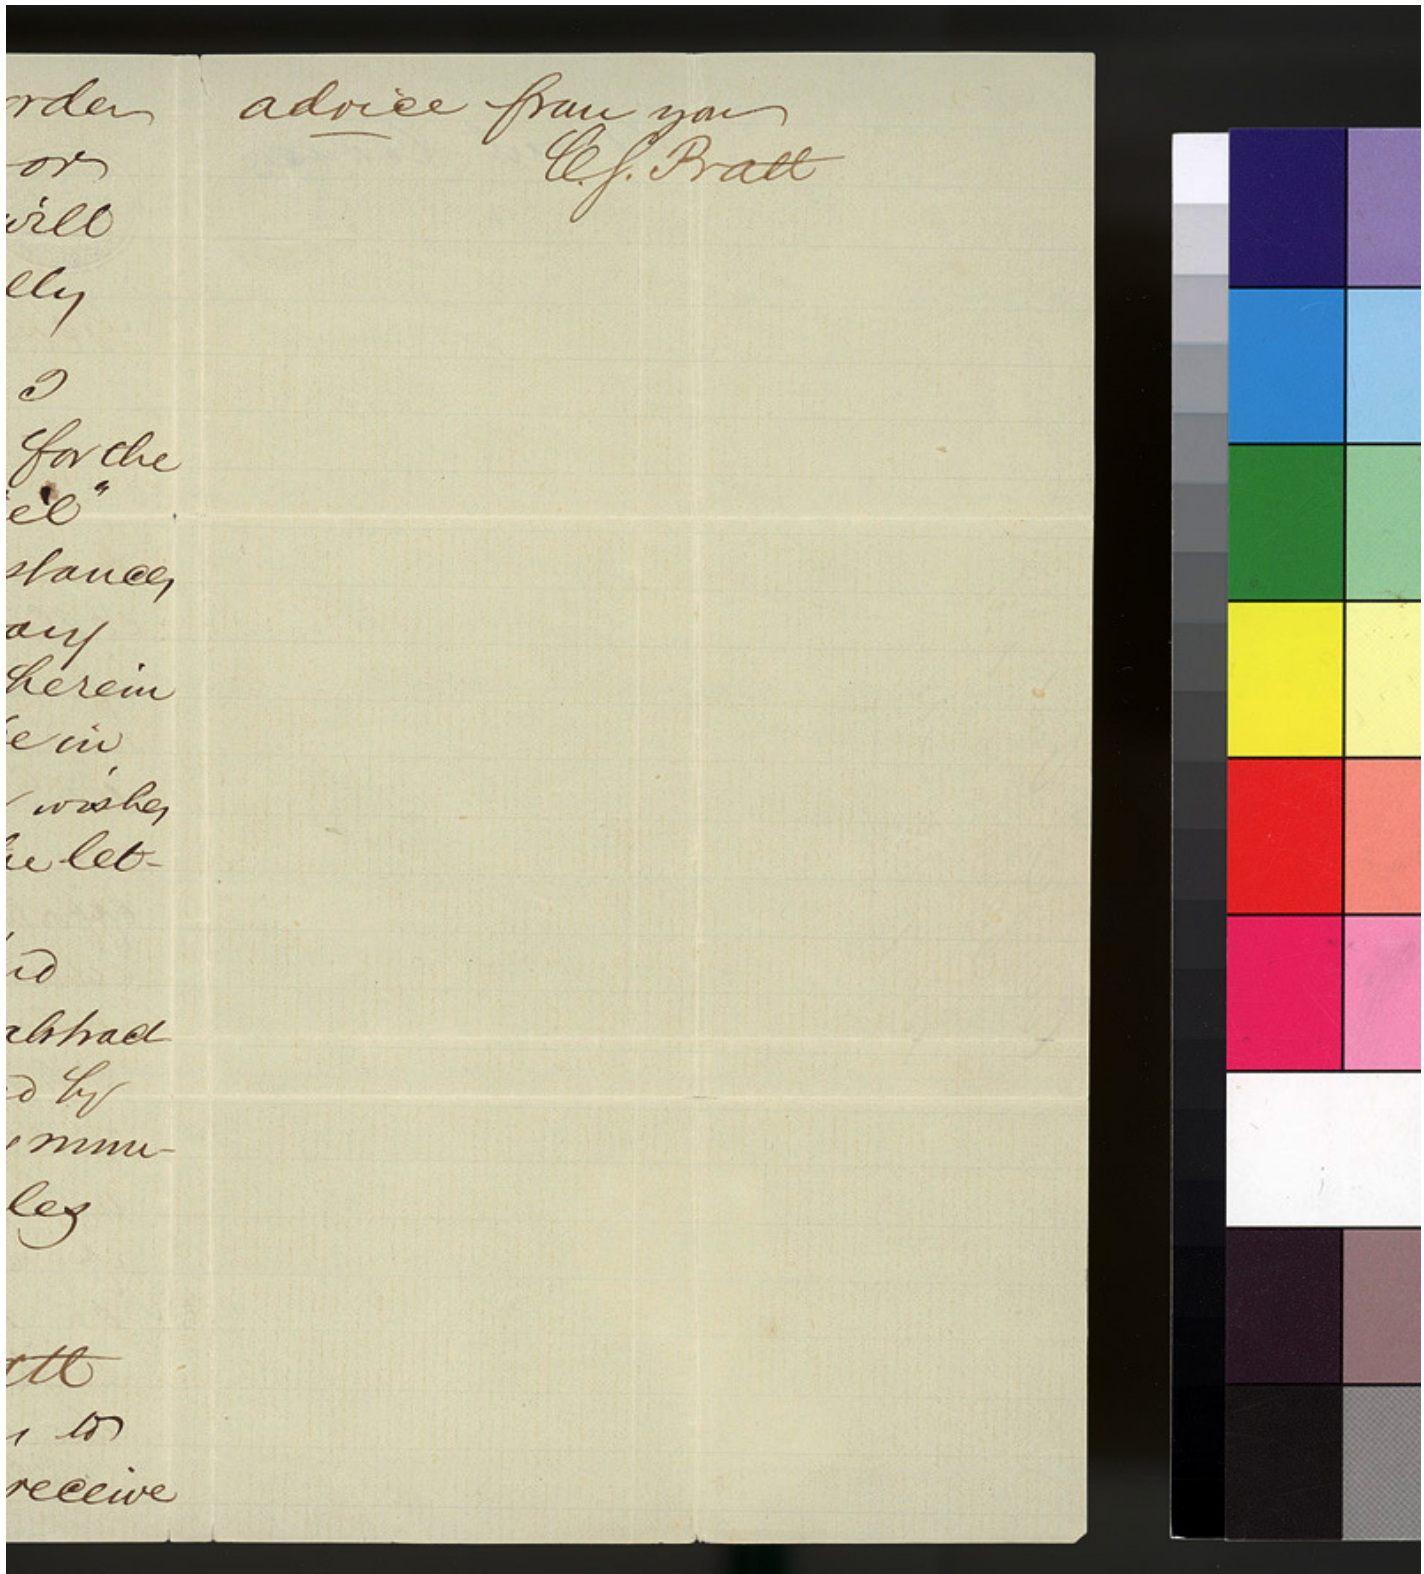 rder
or
will
lly
I
for the
el"
stances
any
herein
e in
wishes
he let-
nd
alstrad
d by
mmu-
les
att
to
receive
advice from you
C. J. Pratt